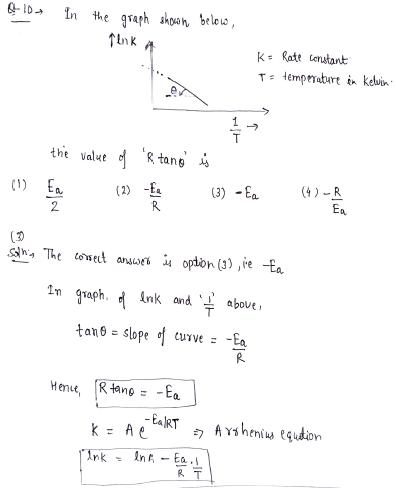 Q-10→ In the graph shown below,
↑lnK
K = Rate constant
T = temperature in kelvin.
θ
1/T →
the value of 'R tanθ' is
(1) Ea/2 (2) -Ea/R (3) -Ea (4) -R/Ea
(3)
Soln:→ The correct answer is option (3), ie -Ea
In graph of lnK and '1/T' above,
tanθ = slope of curve = -Ea/R
Hence, R tanθ = -Ea
K = A e^-Ea/RT ⇒ Arrhenius equation
lnK = lnA - Ea/R . 1/T